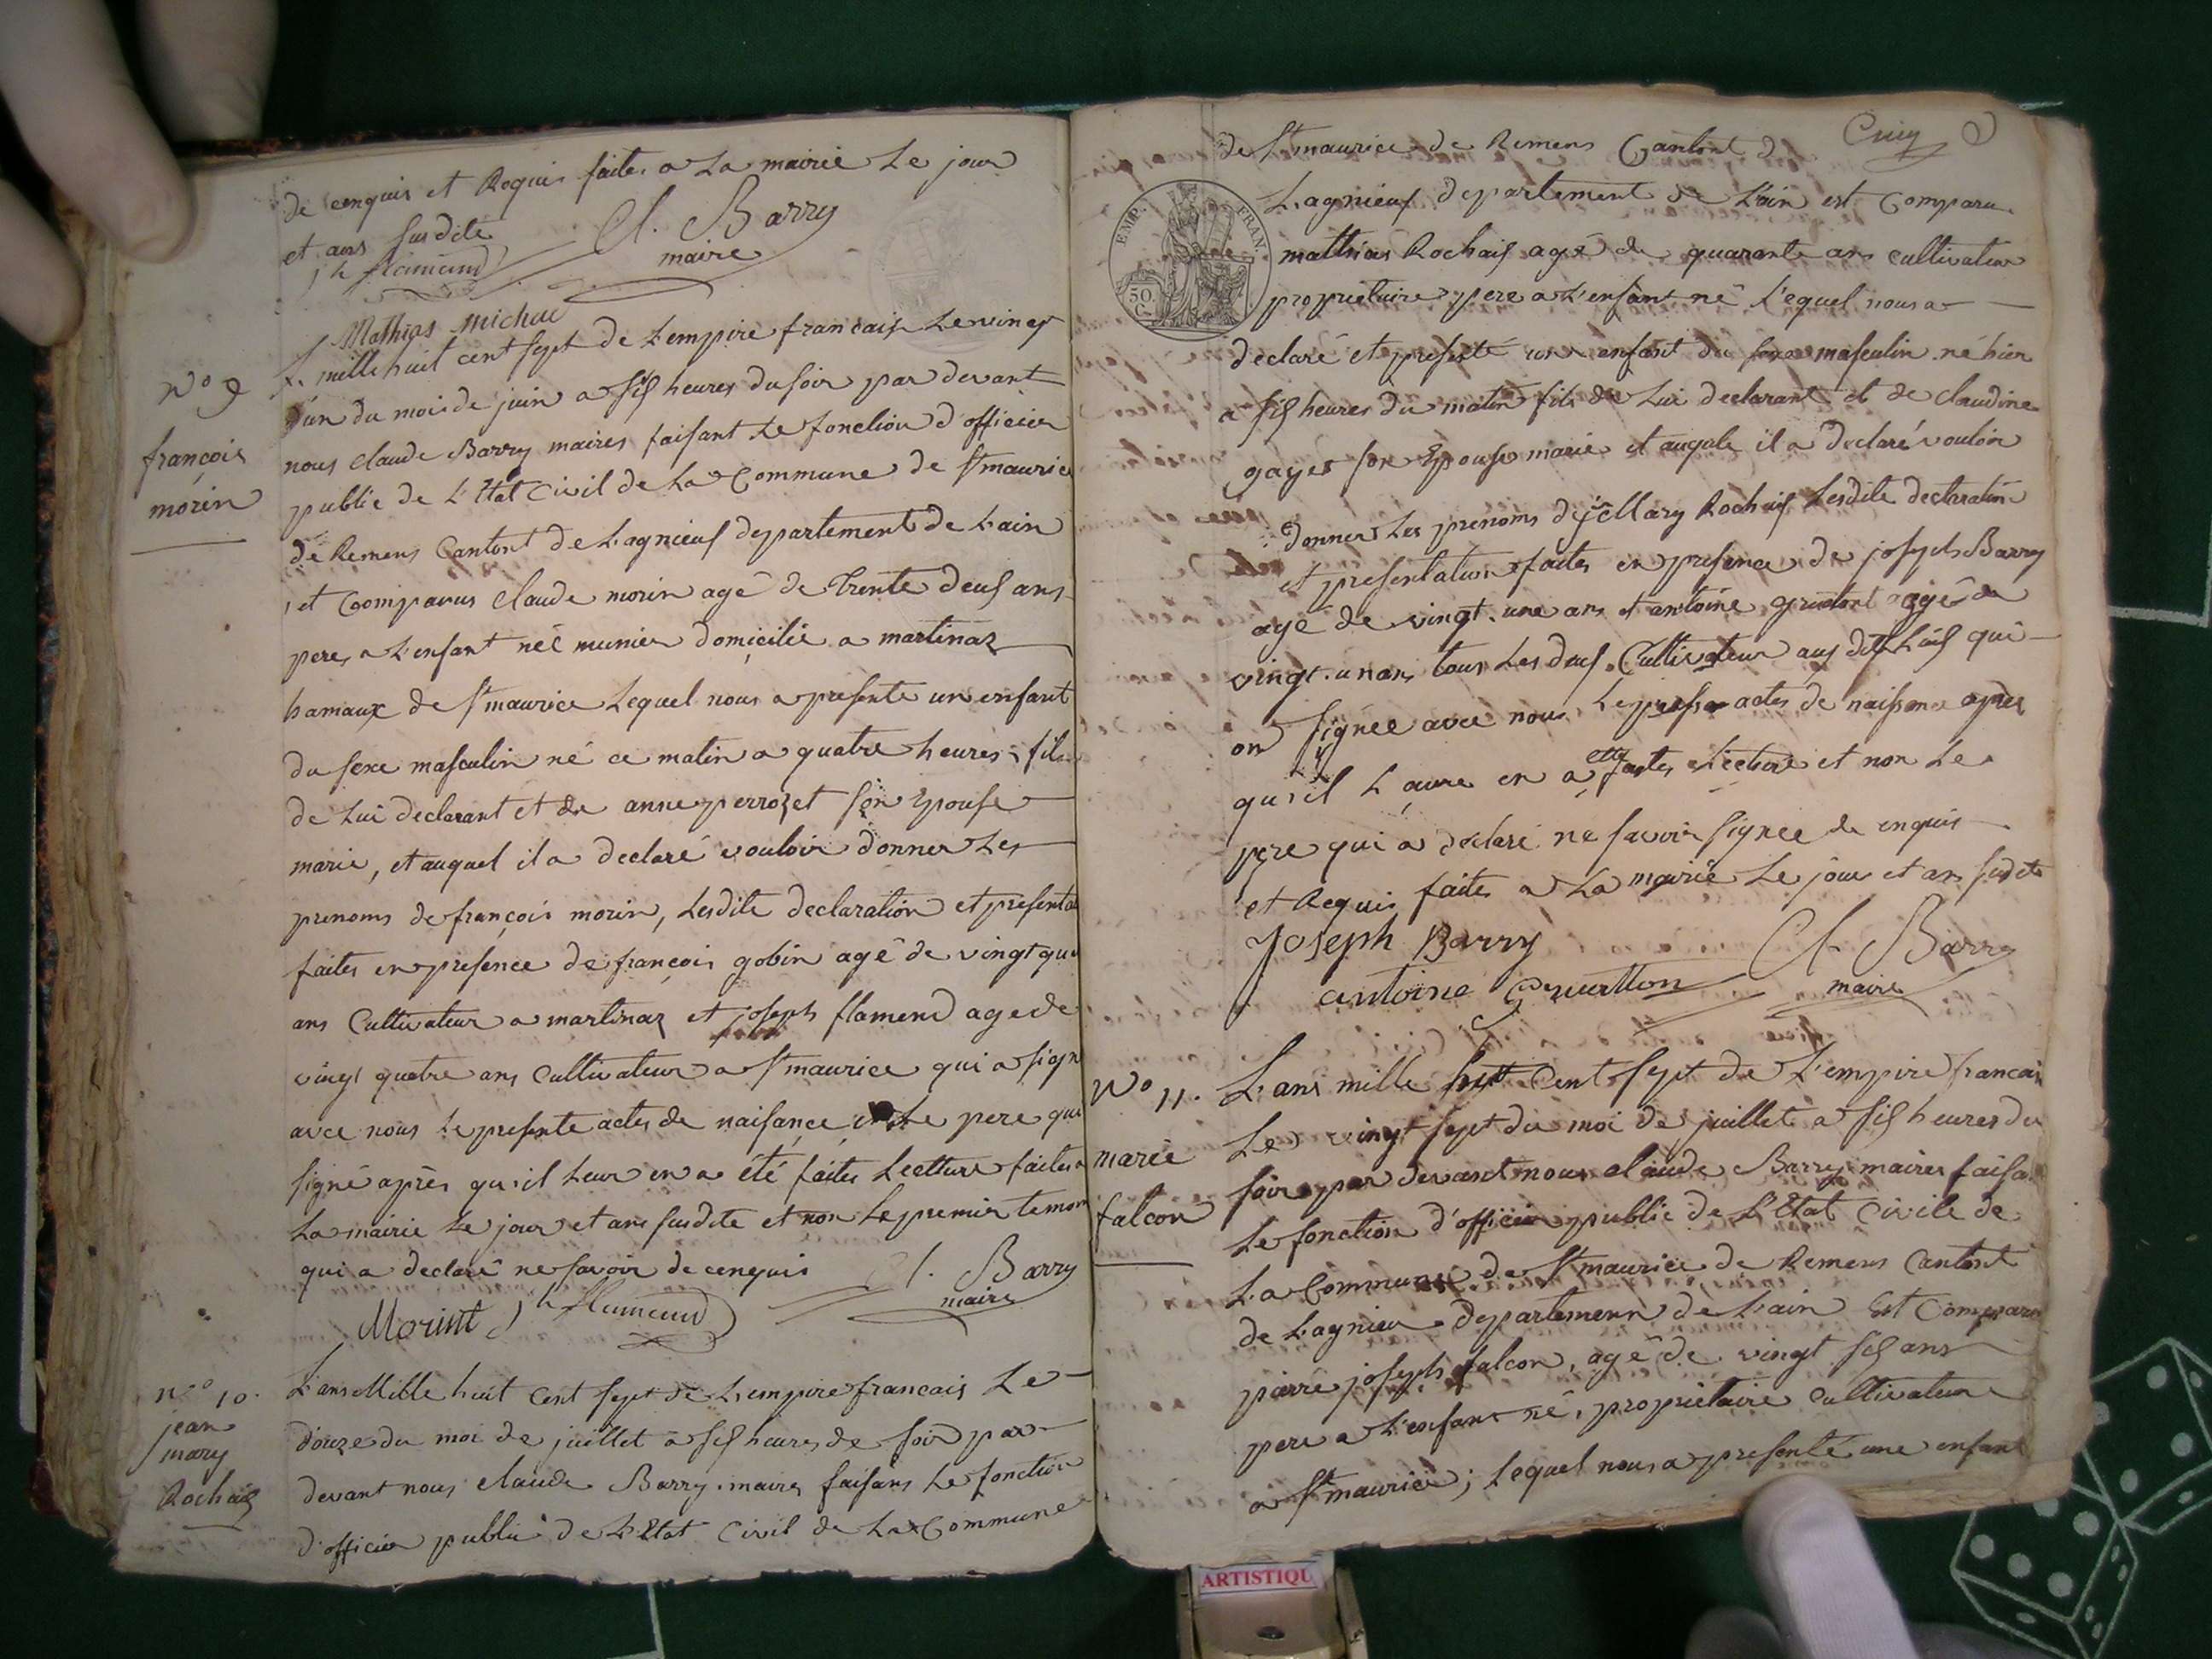 de cenquis et Requis faites a La mairie Le jour
et ans susdite Cl. Barry
jh flamand maire
Mathias michau
L. mille huit cent sept de L'empire francais Le vingt
N° 9
françois
morin
d'un du mois de juin a sis heures du soir par devant
nous claude Barry maires faisant Le fonction d'officier
public de L'Etat Civil de La Commune de St maurice
de Remens Cantont de Lagnieuf departement de L'ain
et Comparus claude morin agé de Trente deuf ans
pere a L'enfant neé munier domicilié a martinaz
hamaux de St maurice Lequel nous a presente un enfant
du sexe masculin né ce matin a quatre heures, fils
de Lui declarant et de anne perrozet son Epouse
marie, et auquel il a declaré vouloir donner Les
prenoms de françois morin, Lesdite declaration et presenta
faites en presence de françois gobin agé de vingt qua
ans Cultivateur a martinaz et joseph flamend age de
vingt quatre ans Cultivateur a St maurice qui a sign
avec nous Le presente actes de naisance Le pere qui
signé après qu'il Leur en a été faites Lectture faites a
La mairie Le jour et ans susdite et non Le premier temon
qui a declaré ne savoir de cenquis Cl. Barry
Morint jh flamand maire
N° 10.
jean
mary
Rochaif
L'ans Mille huit Cent sept de L'empire francais Le
douze du moi de juillet a sis heures de soir par
devant nous claude Barry maires faisans Le fonction
d'officier public de L'Etat Civil de La Commune
de St maurice de Remens Cantont d
EMP. FRAN.
50.
C.
Lagnieuf departement de L'ain est Comparu
matthias Rochaif agé de quarante ans cultivateur
proprietaire pere a L'enfant né L'equel nous a
declaré et presenté un enfant du sexe masculin né hier
a sis heures du matin fils de Lui declarant et de claudine
gayet son Epouse marie et auqele il a declaré vouloir
donner Les prenoms de Mary Rochaif Lesdite declaration
et presentation faites en presence de joseph Barry
agé de vingt une ans et antoine grutont agé de
vingt un ans tous Les deuf Cultivateur aus dit qui
on signee avec nous Le presen actes de naisance apres
qu'il L'aure en a etté faites Lecture et non Le
pere qui a declaré ne savoir signee de enquis
et Requis faites a La mairie Le jour et ans susdite
Joseph Barry Cl. Barry
antoine Gruntton maire
N° 11.
marie
falcon
L'ans mille huit Cent sept de L'empire francais
Le vingt sept du moi de juillet a sis heures du
soir par devant nous claude Barry maires faisa
Le fonction d'officier public de L'Etat Civile de
La Commune de St maurice de Remens Cantont
de Lagnieu departemenn de L'ain Est Comparu
pierre joseph falcon, agé de vingt sis ans
pere a L'enfant né, proprietaire Cultivateur
a St maurice; Lequel nous a presenté une enfant
ARTISTIQU